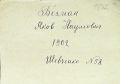 Вегман
Яков Наумович
1902
Шевченко № 58